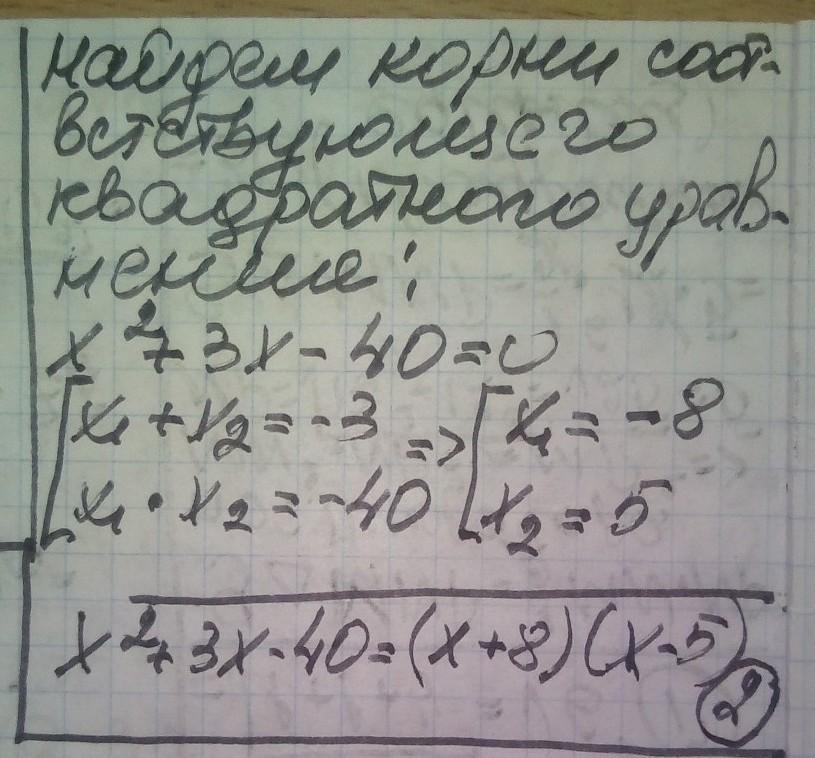 найдем корни соот-
ветствующего
квадратного урав-
нения:
x²+3x-40=0
[x₁+x₂=-3 => [x₁=-8
[x₁·x₂=-40 [x₂=5
x²+3x-40=(x+8)(x-5)
2